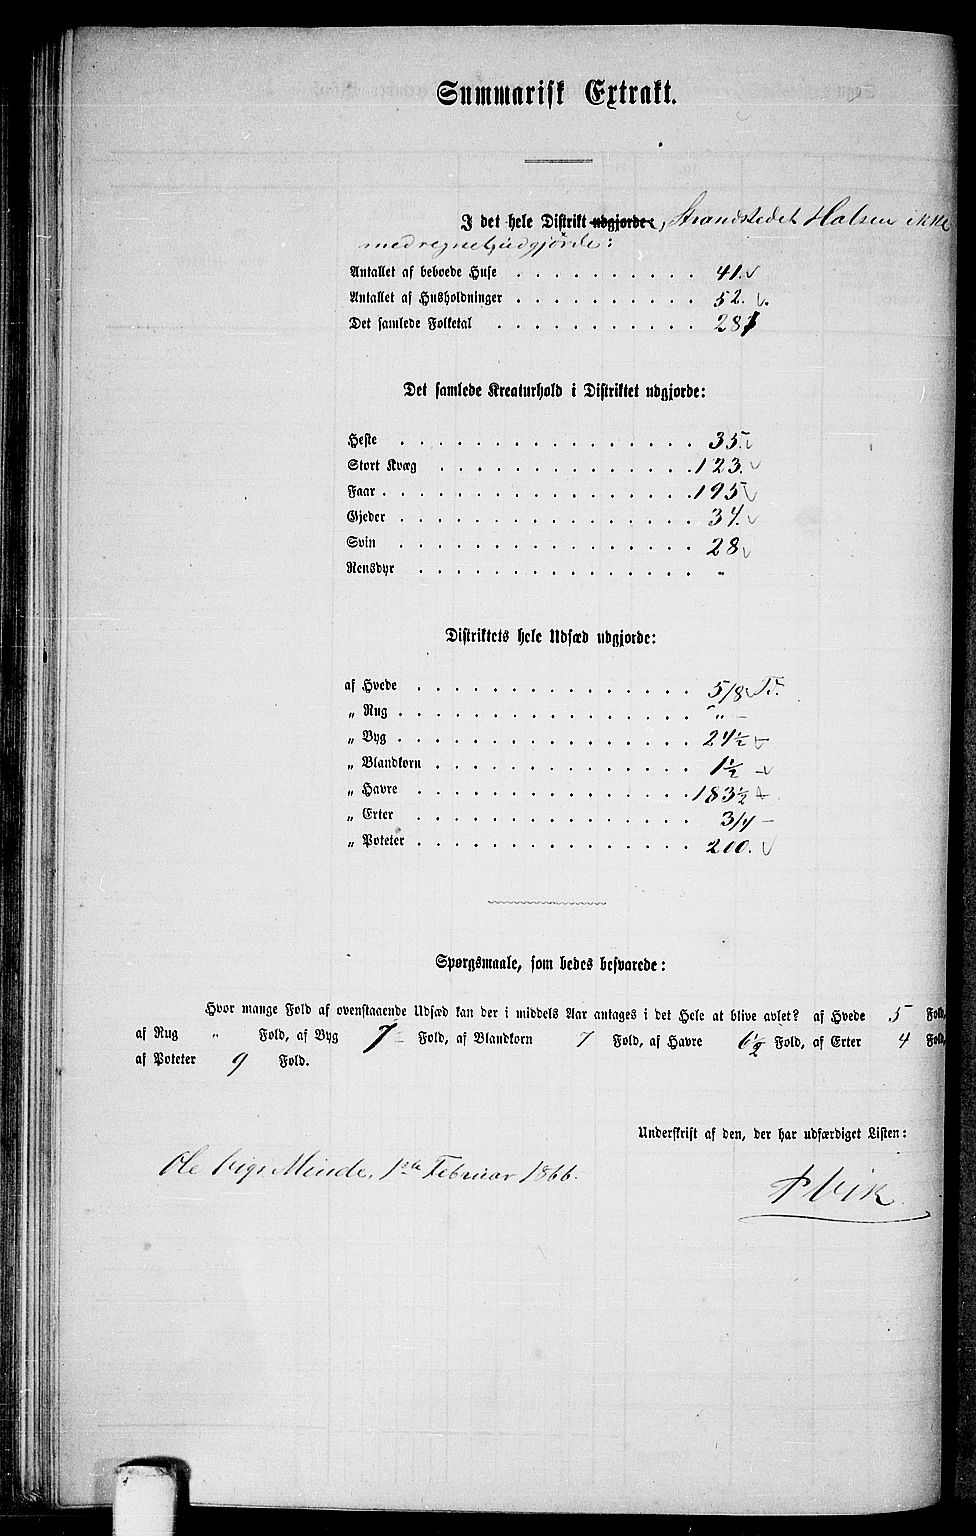 Summarisk Extrakt.
I det hele Distrikt udgjorde, Strandstedet Halsen ikke
medregnet, udgjorde:
Antallet af beboede Huse . . . . . . . . . . 41.
Antallet af Husholdninger . . . . . . . . . . 52.
Det samlede Folketal . . . . . . . . . . .
Det samlede Kreaturhold i Distriktet udgjorde:
Heste . . . . . . . . . . . . . . . . 35.
Stort Kvæg . . . . . . . . . . . . . . 123.
Faar . . . . . . . . . . . . . . . . . 195
Gjeder . . . . . . . . . . . . . . . .
Svin . . . . . . . . . . . . . . . . 28
Rensdyr . . . . . . . . . . . . . . . „
Distriktets hele Udsæd udgjorde:
af Hvede . . . . . . . . . . . . . . . 5/8 Tr.
„ Rug . . . . . . . . . . . . . . . . „ –
„ Byg . . . . . . . . . . . . . . . . 24½ –
„ Blandkorn . . . . . . . . . . . . . . 1½ –
„ Havre . . . . . . . . . . . . . . . 183½ –
„ Erter . . . . . . . . . . . . . . . 3/4 –
„ Poteter . . . . . . . . . . . . . . . 210.
Spørgsmaale, som bedes besvarede:
Hvor mange Fold af ovenstaaende Udsæd kan der i middels Aar antages i det Hele at blive avlet? af Hvede 5 Fold,
af Rug „ Fold, af Byg 7 Fold, af Blandkorn 7 Fold, af Havre 6½ Fold, af Erter 4 Fold,
af Poteter 9 Fold.
Underskrift af den, der har udfærdiget Listen:
Ole Vigs Minde, 1ste Februar 1866.
P Vik